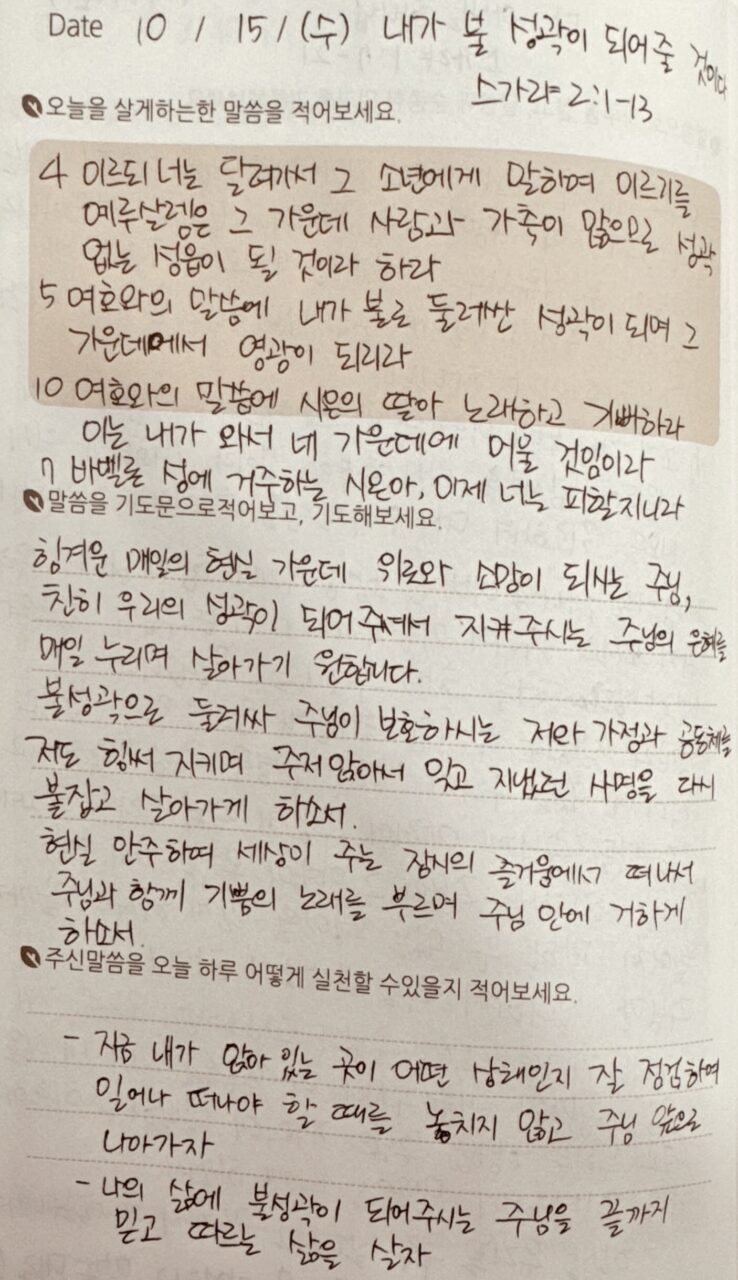 Date 10 / 15 / (수) 내가 불 성곽이 되어줄 것이다
스가랴 2:1-13
오늘을 살게하는한 말씀을 적어보세요.
4 이르되 너는 달려가서 그 소년에게 말하여 이르기를
예루살렘은 그 가운데 사람과 가축이 많으므로 성곽
없는 성읍이 될 것이라 하라
5 여호와의 말씀에 내가 불로 둘러싼 성곽이 되며 그
가운데에서 영광이 되리라
10 여호와의 말씀에 시온의 딸아 노래하고 기뻐하라
이는 내가 와서 네 가운데에 머물 것임이라
7 바벨론 성에 거주하는 시온아, 이제 너는 피할지니라
말씀을 기도문으로적어보고, 기도해보세요.
힘겨운 매일의 현실 가운데 위로와 소망이 되시는 주님,
친히 우리의 성곽이 되어주셔서 지켜주시는 주님의 은혜를
매일 누리며 살아가기 원합니다.
불성곽으로 둘러싸 주님이 보호하시는 저와 가정과 공동체를
저도 힘써 지키며 주저앉아서 잊고 지냈던 사명을 다시
붙잡고 살아가게 하소서.
현실 안주하며 세상이 주는 잠시의 즐거움에서 떠나서
주님과 함께 기쁨의 노래를 부르며 주님 안에 거하게
하소서.
주신말씀을 오늘 하루 어떻게 실천할 수있을지 적어보세요.
- 지금 내가 앉아 있는 곳이 어떤 상태인지 잘 점검하여
일어나 떠나야 할 때를 놓치지 않고 주님 앞으로
나아가자
- 나의 삶에 불성곽이 되어주시는 주님을 끝까지
믿고 따르는 삶을 살자